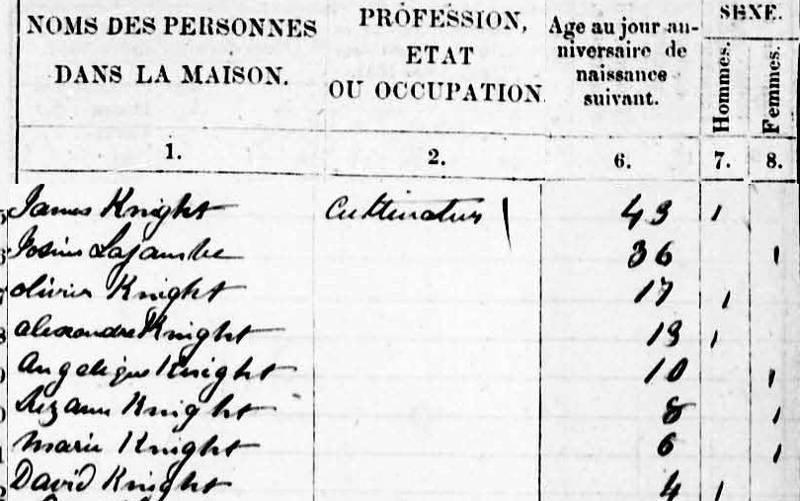 NOMS DES PERSONNES DANS LA MAISON.
PROFESSION, ETAT OU OCCUPATION
Age au jour an-niversaire de naissance suivant.
SEXE.
Hommes.
Femmes.
1. 2. 6. 7. 8.
James Knight Cultivateur 43 1
Lajambe 36 1
olivier Knight 17 1
alexandre Knight 13 1
Angelique Knight 10 1
Suzann Knight 8 1
Marie Knight 6 1
David Knight 4 1